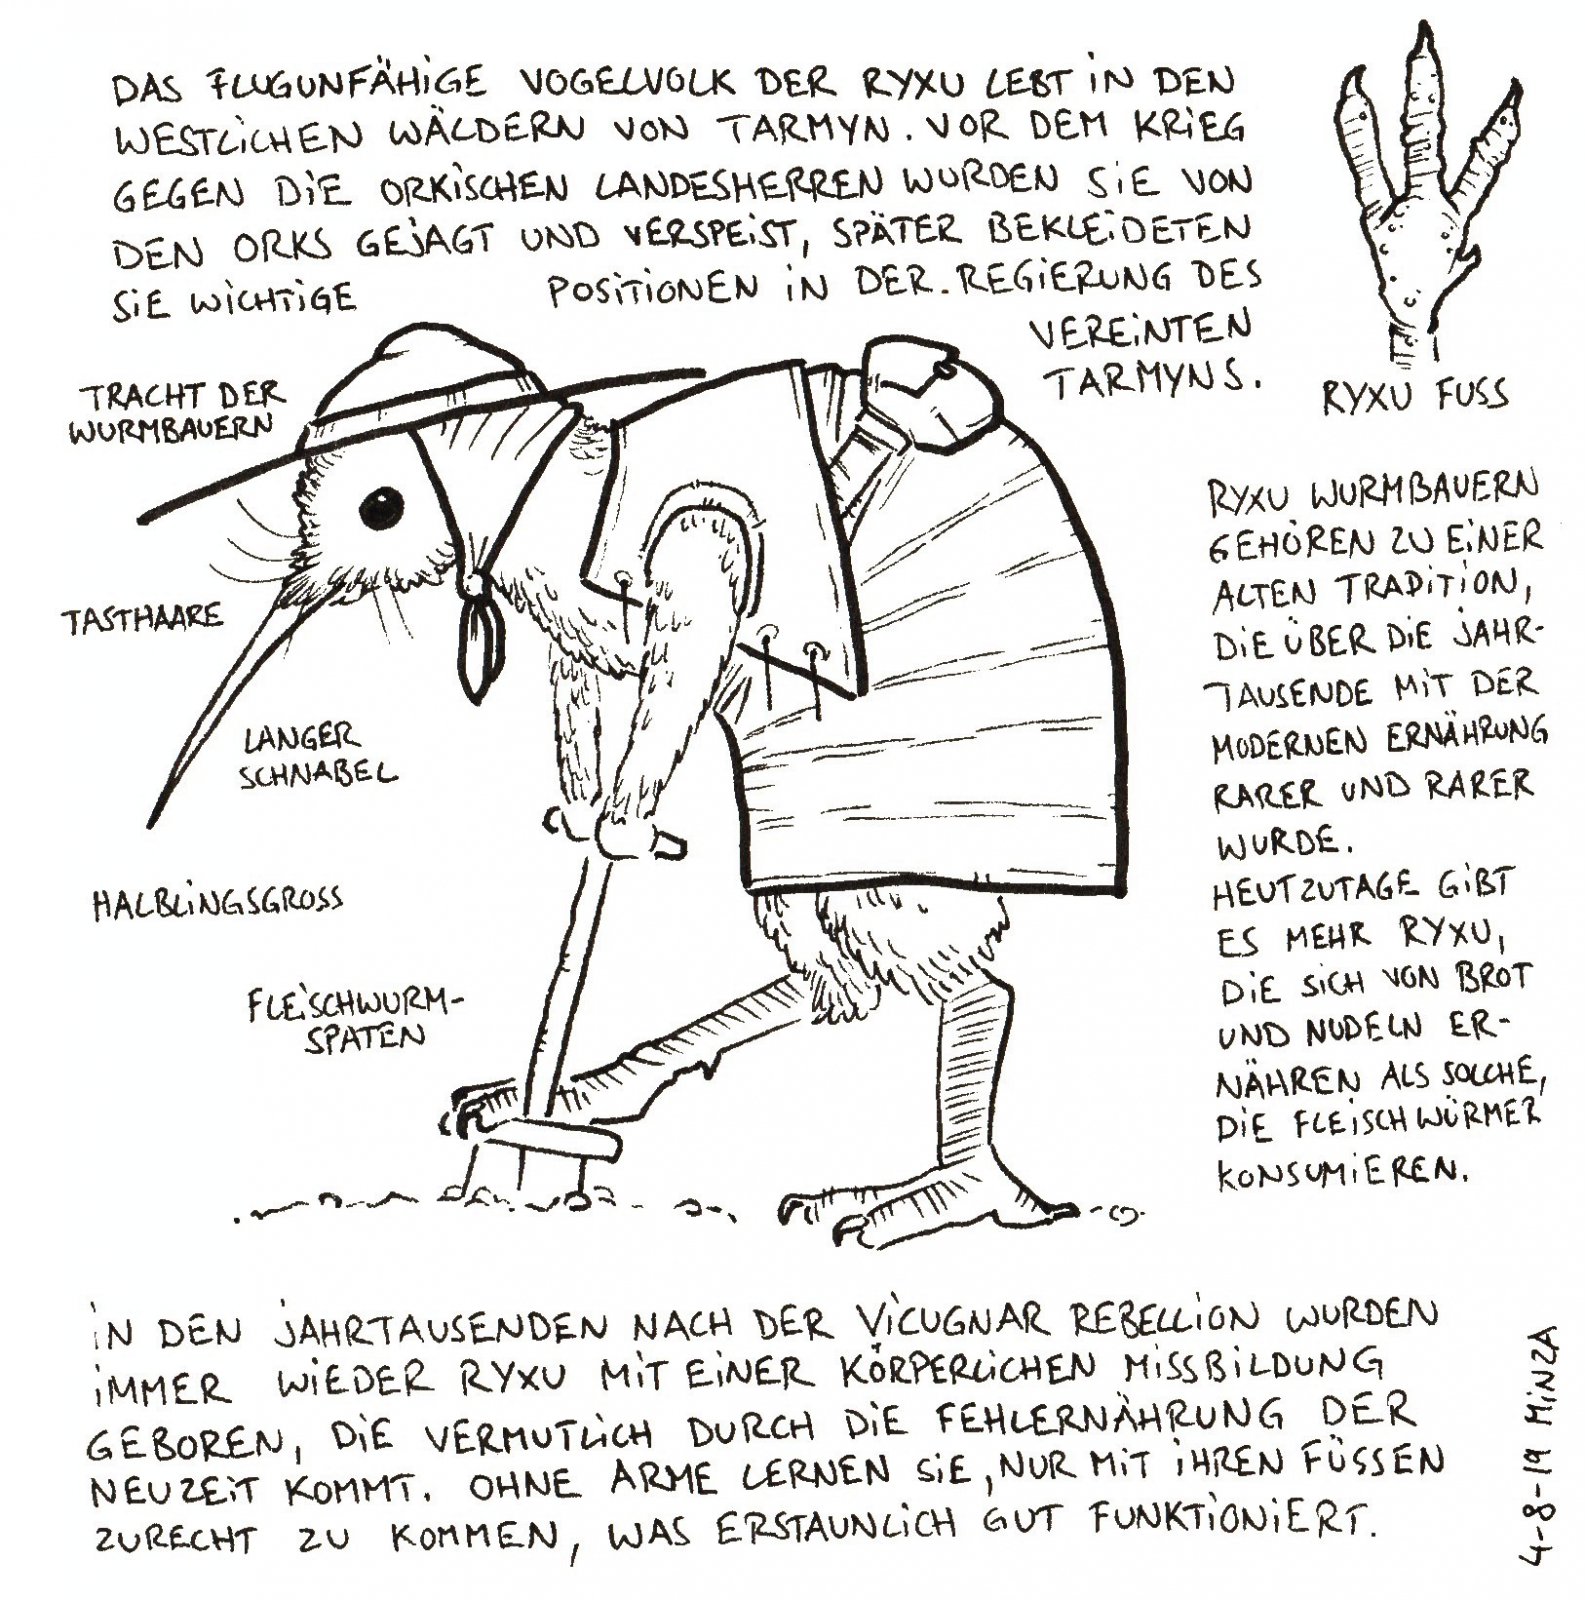 DAS FLUGUNFÄHIGE VOGELVOLK DER RYXU LEBT IN DEN
WESTLICHEN WÄLDERN VON TARMYN. VOR DEM KRIEG
GEGEN DIE ORKISCHEN LANDESHERREN WURDEN SIE VON
DEN ORKS GEJAGT UND VERSPEIST, SPÄTER BEKLEIDETEN
SIE WICHTIGE POSITIONEN IN DER REGIERUNG DES
VEREINTEN
TARMYNS.
RYXU FUSS
TRACHT DER
WURMBAUERN
TASTHAARE
LANGER
SCHNABEL
HALBLINGSGROSS
FLEISCHWURM-
SPATEN
RYXU WURMBAUERN
GEHÖREN ZU EINER
ALTEN TRADITION,
DIE ÜBER DIE JAHR-
TAUSENDE MIT DER
MODERNEN ERNÄHRUNG
RARER UND RARER
WURDE.
HEUTZUTAGE GIBT
ES MEHR RYXU,
DIE SICH VON BROT
UND NUDELN ER-
NÄHREN ALS SOLCHE,
DIE FLEISCHWÜRMER
KONSUMIEREN.
IN DEN JAHRTAUSENDEN NACH DER VICUGNAR REBELLION WURDEN
IMMER WIEDER RYXU MIT EINER KÖRPERLICHEN MISSBILDUNG
GEBOREN, DIE VERMUTLICH DURCH DIE FEHLERNÄHRUNG DER
NEUZEIT KOMMT. OHNE ARME LERNEN SIE, NUR MIT IHREN FÜSSEN
ZURECHT ZU KOMMEN, WAS ERSTAUNLICH GUT FUNKTIONIERT.
4-8-19 MINZA